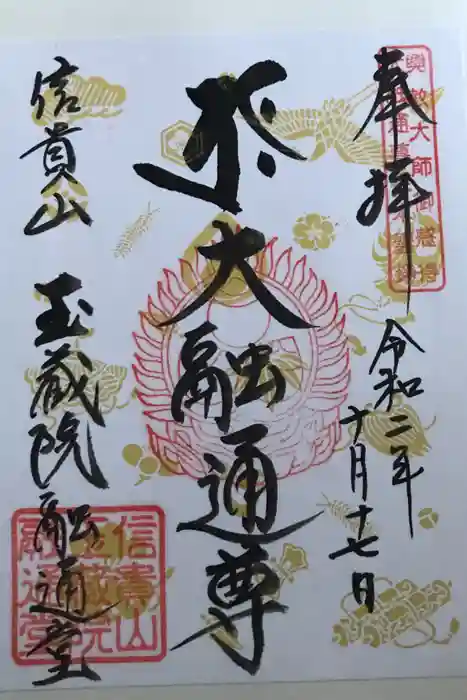 奉拝
令和二年
十月十七日
大融通尊
信貴山
玉蔵院融通堂
信貴山
玉蔵院
融通堂